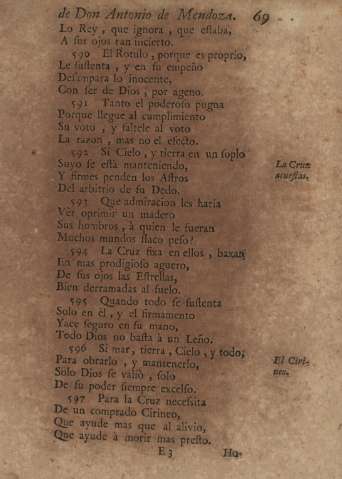 de Don Antonio de Mendoza. 69
Lo Rey, que ignora, que estaba,
A sus ojos tan incierto.
590 El Rotulo, porque es proprio,
Le sustenta, y en su empeño
Desampara lo inocente,
Con ser de Dios, por ageno.
591 Tanto el poderoso pugna
Porque llegue al cumplimiento
Su voto, y faltele al voto
La razon, mas no el efecto.
592 Si Cielo, y tierra en un soplo
Suyo se está manteniendo,
Y firmes penden los Astros
Del arbitrio de su Dedo.
La Cruz
acuestas.
593 Que admiracion les haria
Ver oprimir un madero
Sus hombros, à quien le fueran
Muchos mundos flaco peso?
594 La Cruz fixa en ellos, baxan
En mas prodigioso aguero,
De sus ojos las Estrellas,
Bien derramadas al suelo.
595 Quando todo se sustenta
Solo en èl, y el firmamento
Yace seguro en su mano,
Todo Dios no basta à un Leño.
596 Si mar, tierra, Cielo, y todo,
Para obrarlo, y mantenerlo,
Solo Dios se valiò, solo
De su poder siempre excelso.
El Ciri-
neo.
597 Para la Cruz necessita
De un comprado Cirineo,
Que ayude mas que al alivio,
Que ayude à morir mas presto.
E3 Ho-